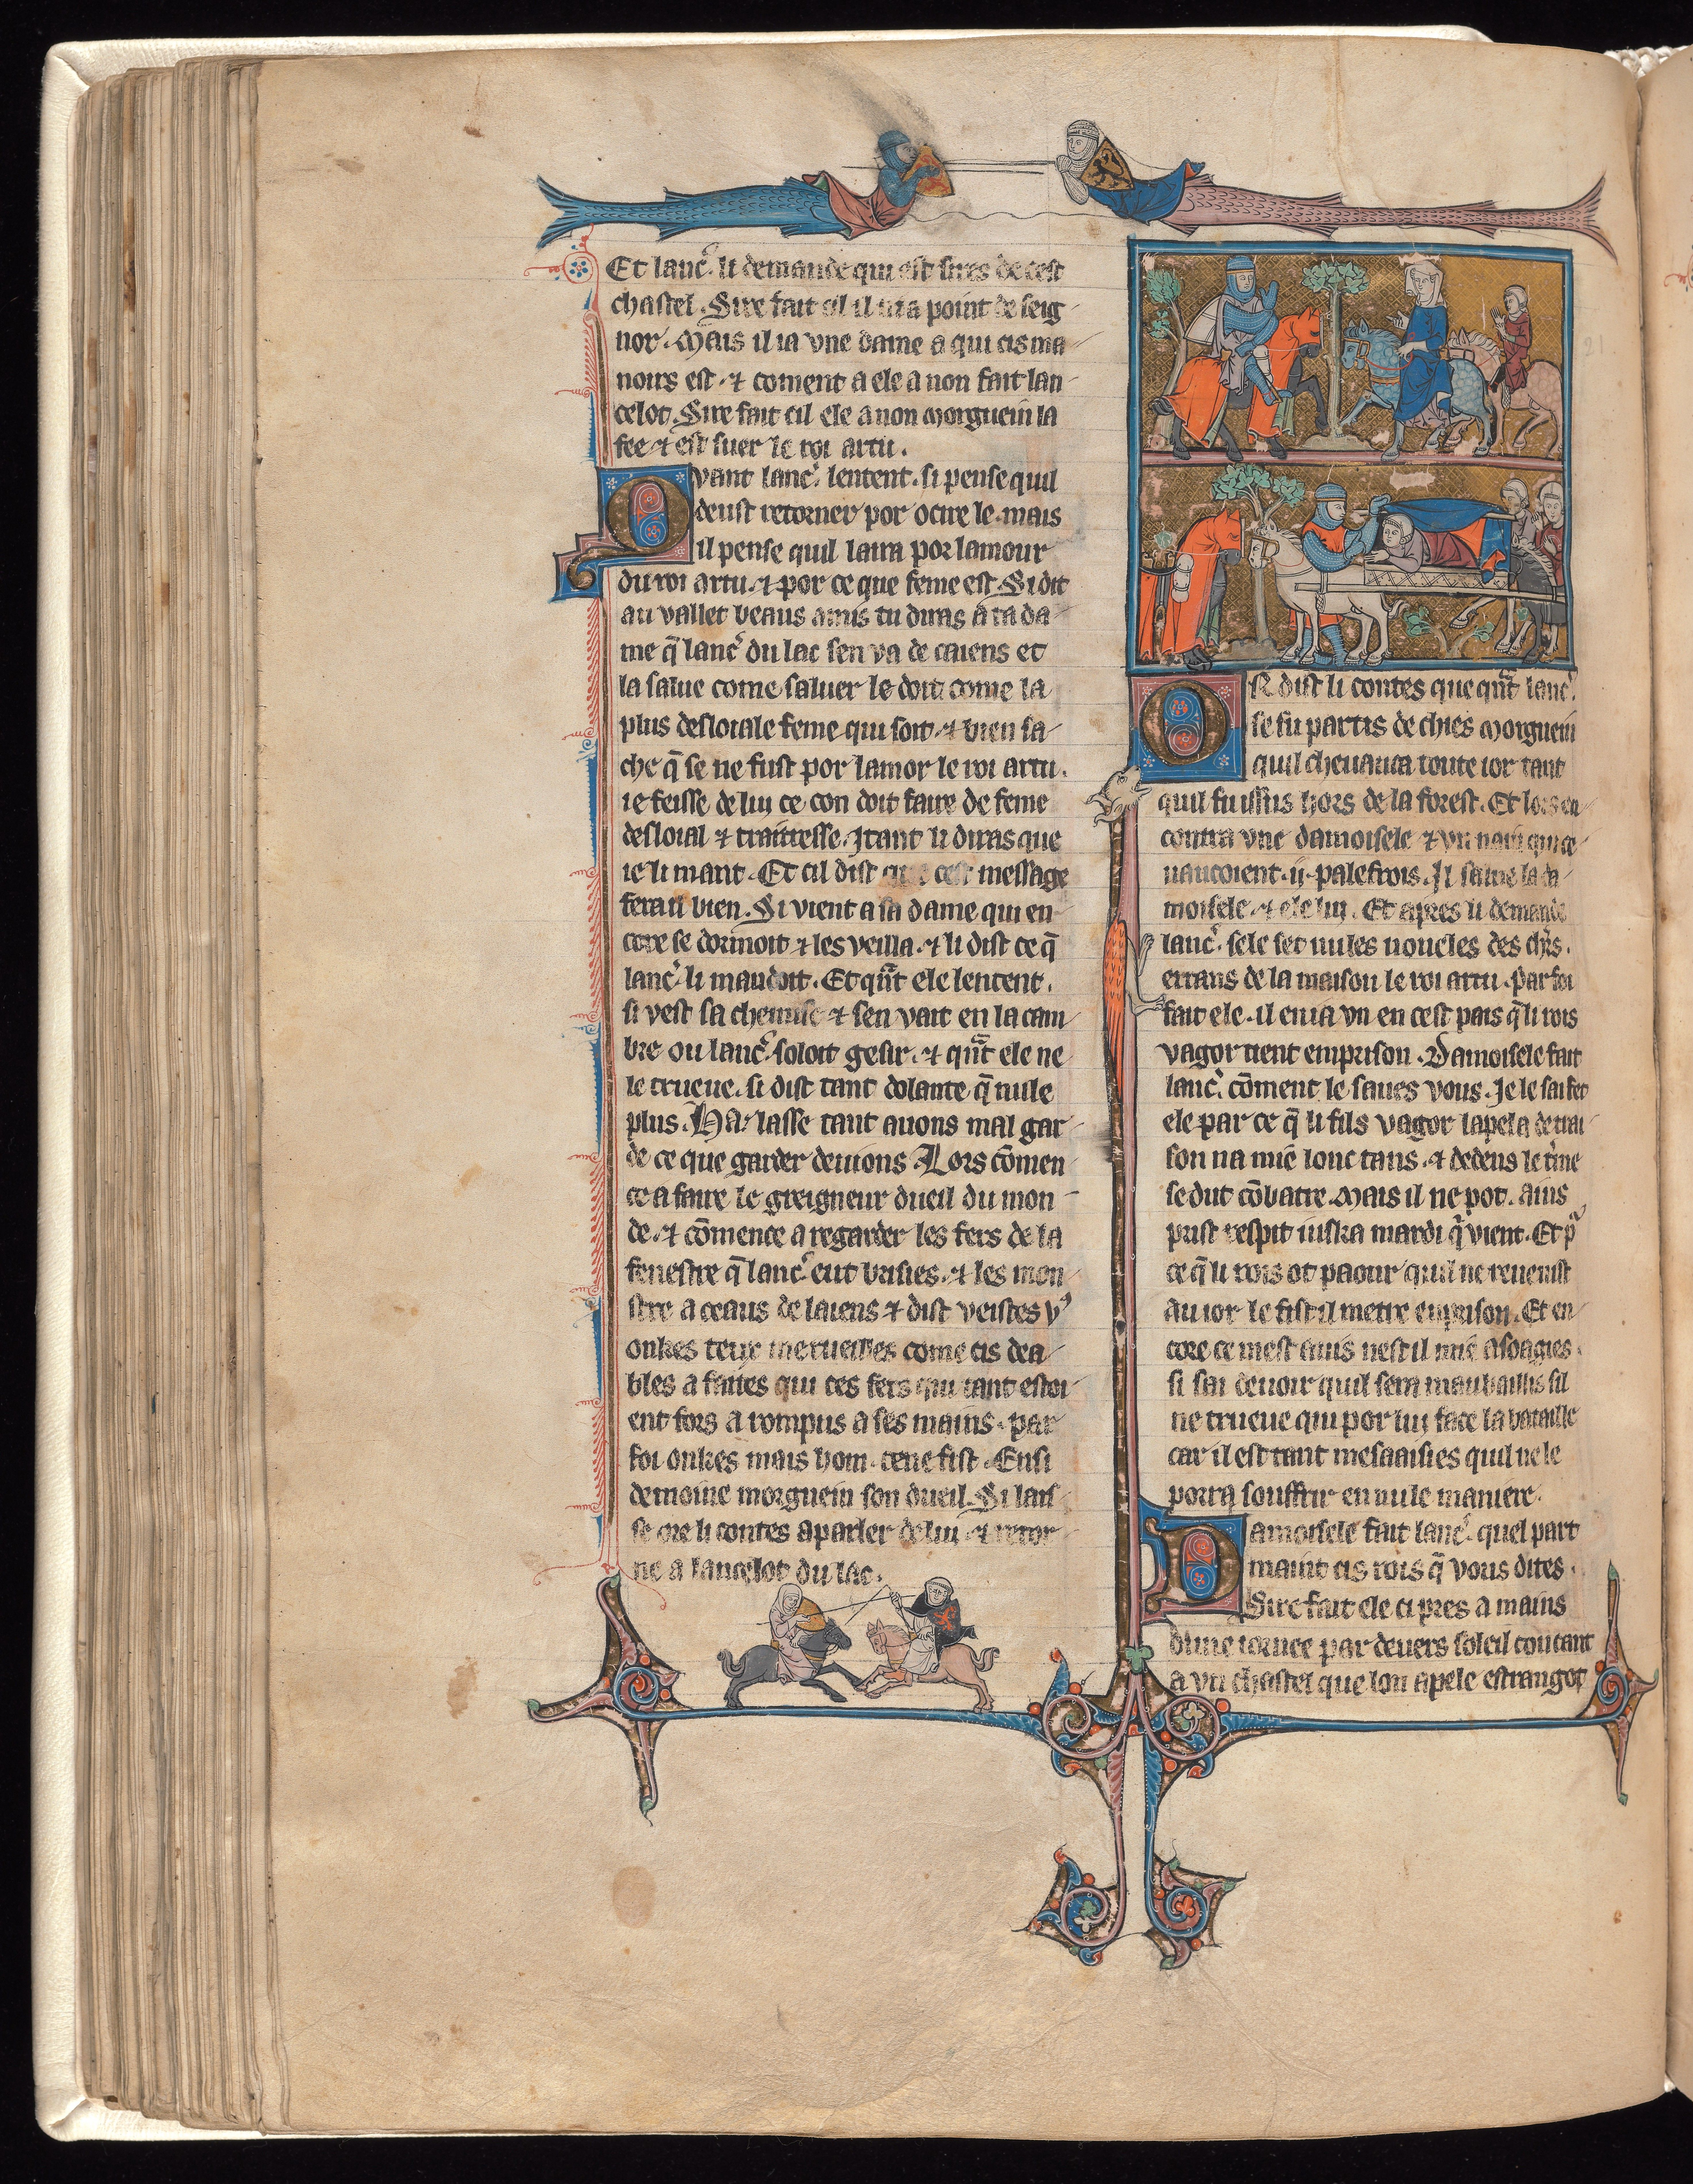 Et lanc̉. li demande qui est sires de cest
chastel. Sire fait cil il ni a point de seig
nor. Mais il ia vne dame a qui cis ma
noirs est. ⁊ coment a ele a non fait lan
celot. Sire fait cil ele a non morguein la
fee ⁊ est suer le roi artu.
Qvant lanc̉. lentent. si pense quil
deust retorner por ocire le. mais
il pense quil laira por lamour
du roi artu. ⁊ por ce que feme est. Si dit
au vallet beaus amis tu diras a ta da
me q̃ lanc̉ du lac sen va de caiens et
la salue come saluer le doit come la
plus desloiale feme qui soit. ⁊ bien sa
che q̃ se ne fust por lamor le roi artu.
ie feisse de luy ce con doit faire de feme
desloial ⁊ traitresse. Itant li diras que
ie li mant. Et cil dist que cest message
fera il bien. Si vient a sa dame qui en
core se dormoit ⁊ les veilla. ⁊ li dist ce q̃
lanc̉ li mandoit. Et qũt ele lentent.
si vest sa chemise ⁊ sen vait en la cam
bre ou lanc̉. soloit gesir. ⁊ qũt ele ne
le trueue. si dist tant dolante q̃ nule
plus. Ha. lasse tant auons mal gar
de ce que garder deuions. Lors cõmen
ce a faire le greigneur dueil du mon
de. ⁊ cõmence a regarder les fers de la
fenestre q̃ lanc̉ eut brisies. ⁊ les mon
stre a ceaus de laiens ⁊ dist veistes vꝰ
onkes teux merueilles come cis dea
bles a faites qui ces fers qui tant estoi
ent fors a rompus a ses mains. par
foi onkes mais hom. ce ne fist. Ensi
demoine morguein son dueil. Si lais
se ore li contes a parler de lui. ⁊ retor
ne a lancelot du lac.
OR dist li contes que qũt lanc̉.
se fu partis de chies morguein
quil cheuauca toute ior tant
quil fu issus hors de la forest. Et lors en
contra vne damoisele ⁊ vn nain qui ce
uaucoient .ij. palefrois. Il salue la da
moisele. ⁊ ele luy. Et apres li demande
lanc̉. sele set nules noueles des chr̃s.
errans de la maison le roi artu. Par foi
fait ele. il en ia vn en cest pais q̃ li rois
vagor tient en prison. Damoisele fait
lanc̉. cõment le saues vous. Je le sai fet
ele par ce q̃ li fils vagor lapela de trai
son na mie lonc tans. ⁊ dedens le t̉me
se dut cõbatre. Mais il ne pot. ains
prist respit iuska mardi q̉ vient. Et p̉
ce q̃ li rois ot paour quil ne reuenist
au ior le fist il metre en prison. Et en
core ce mest auis nest il mie asoagies.
si sai de uoir quil sera maubaillis sil
ne trueue qui por luy face la bataille
car il est tant mesaaisies quil ne le
porra souffrir en nule maniere.
Damoisele fait lanc̉. quel part
maint cis rois q̃ vous dites.
Sire fait ele ci pres a mains
dune iornee par deuers soleil coucant
a vn chastel que lon apele estrangot